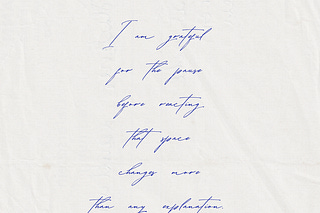 I am grateful
for the pause
before reacting
that space
changes more
than any explanation.